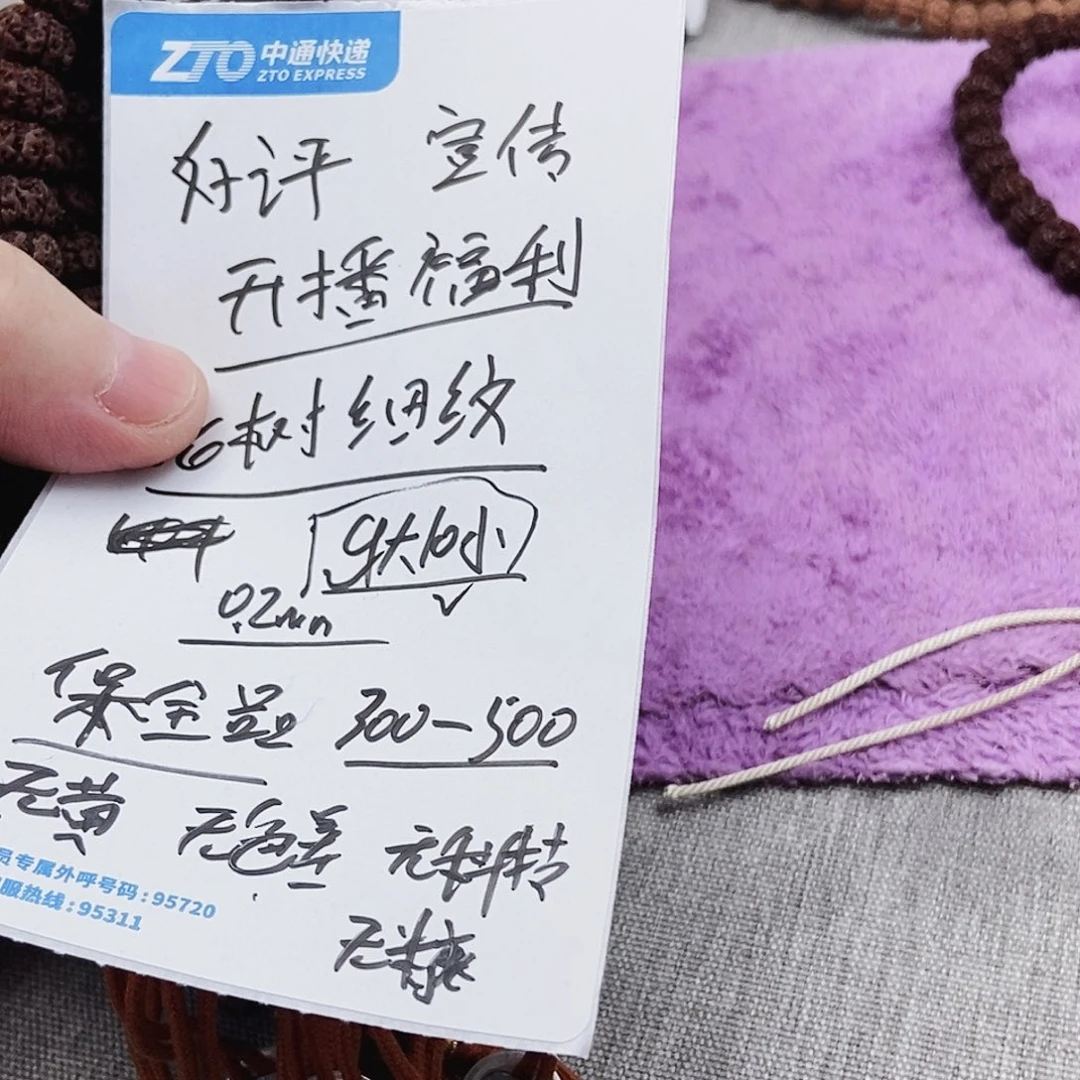 ZTO 中通快递
ZTO EXPRESS
好评 宣传
开播福利
6树细纹
9大10小
0.2mm
保全品 300-500
无黄 无色差 无斜转
无粘底
员专属外呼号码:95720
服热线:95311